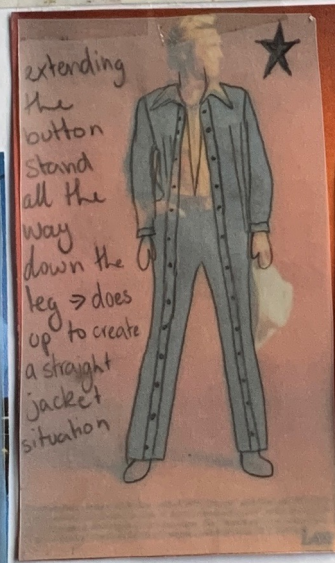 extending
the
button
stand
all the
way
down the
leg → does
up to create
a straight
jacket
situation
Lee